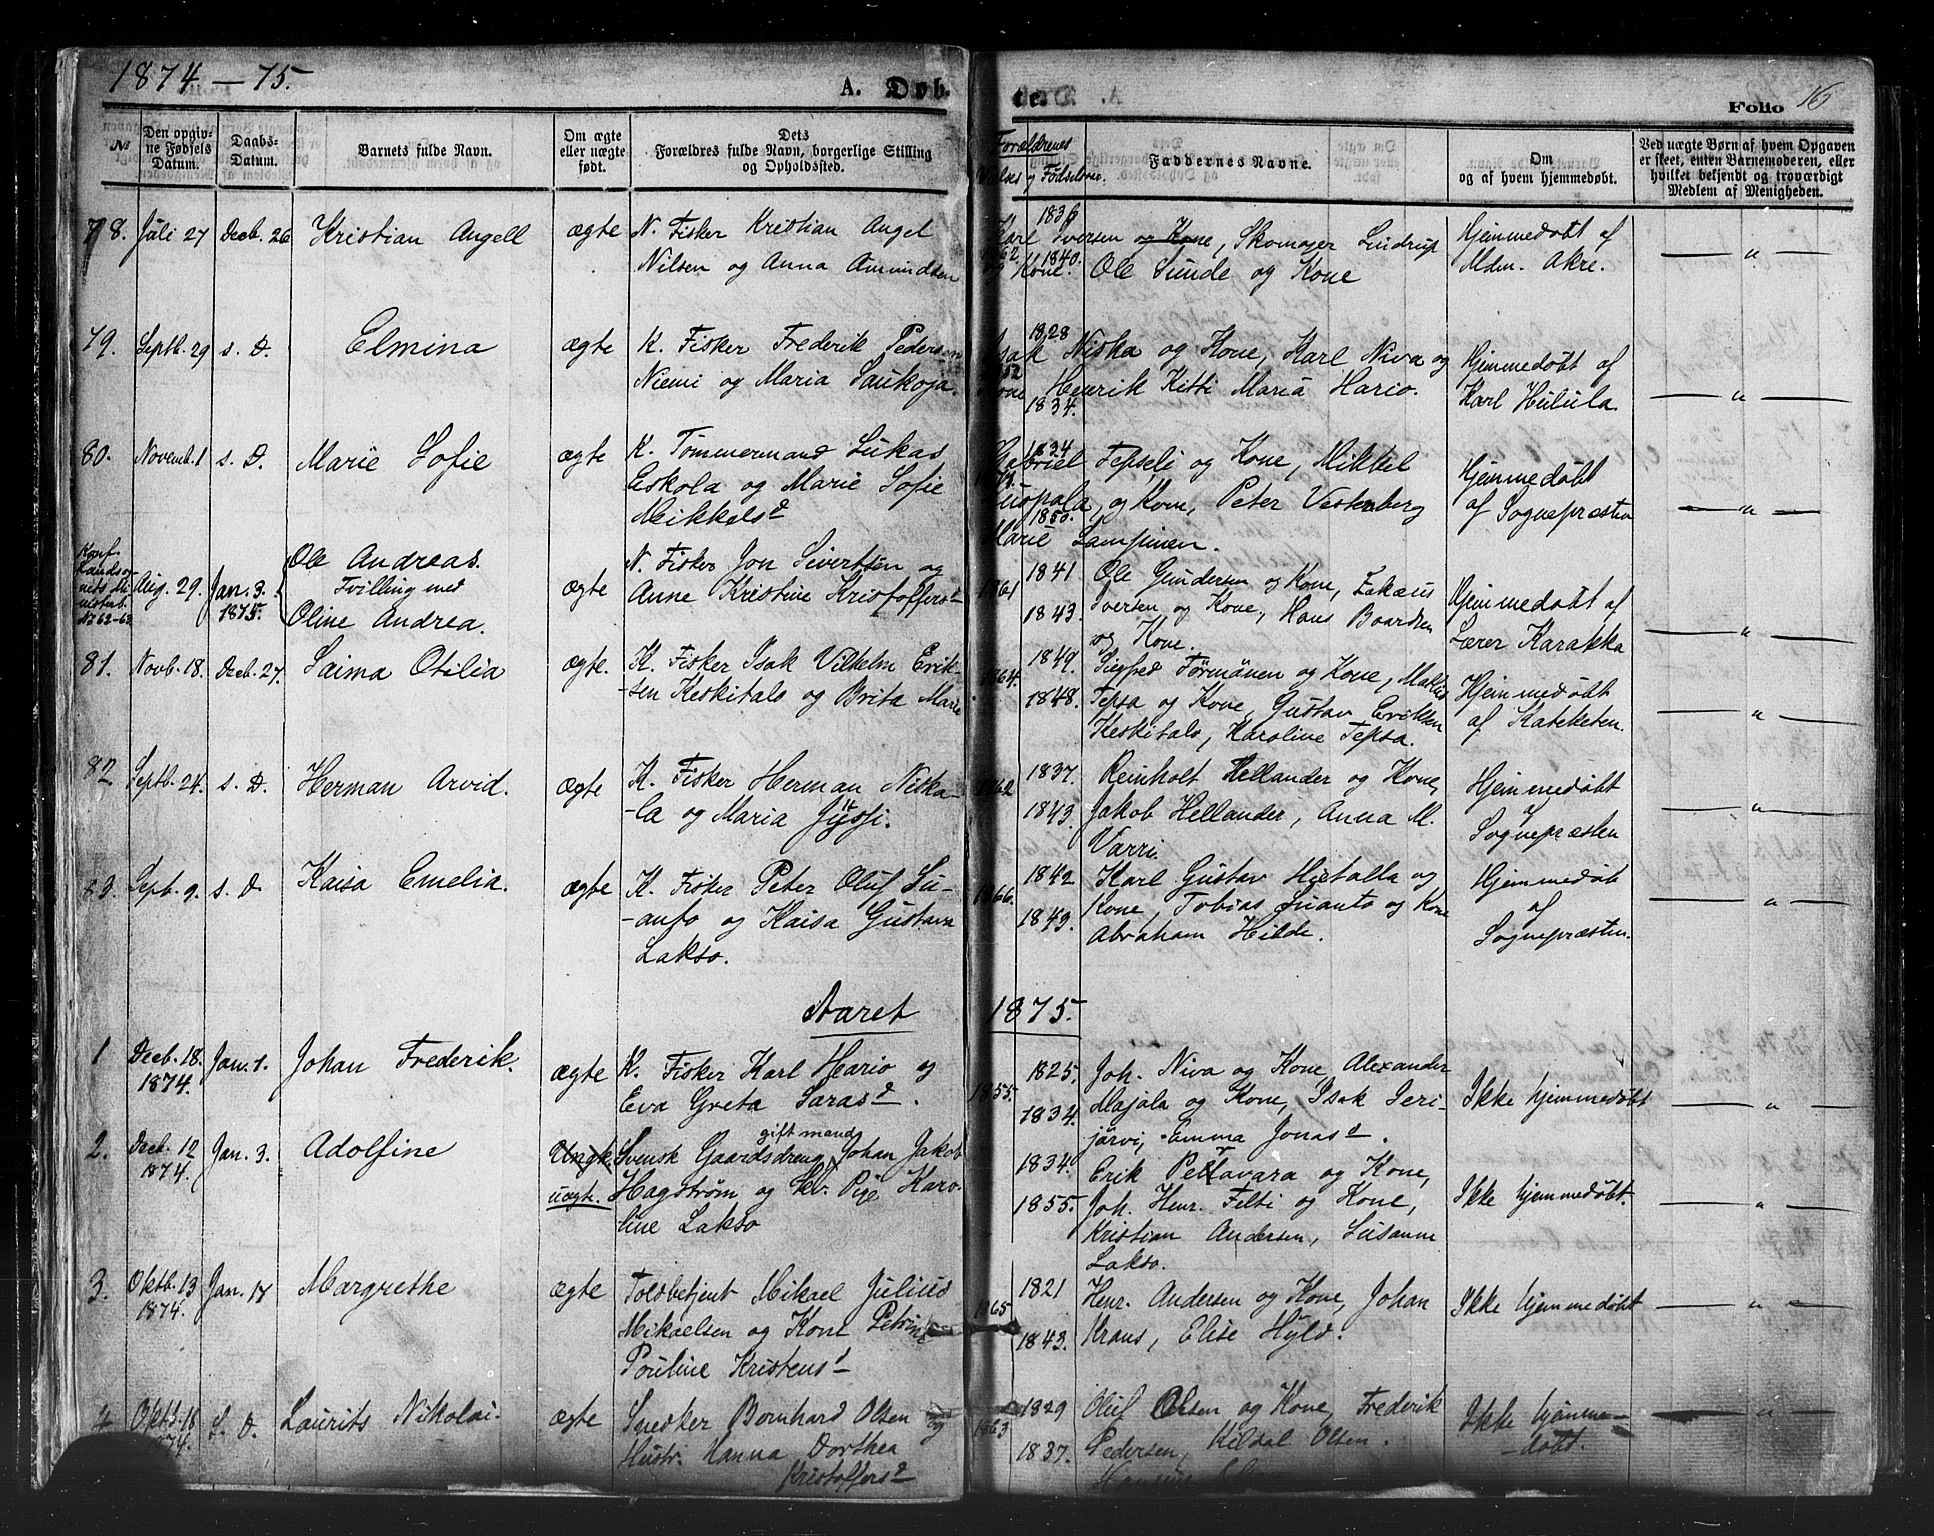 1874-75.
A. Døb.
te.
Folio 16
№
Den opgiv-
ne Fødsels
Datum.
Daabs-
Datum.
Barnets fulde Navn.
Om ægte
eller uægte
født.
Dets
Forældres fulde Navn, borgerlige Stilling
og Opholdssted.
Forældrenes
Faddernes Navne.
Om
og af hvem hjemmedøbt.
Ved uægte Børn af hvem Opgaven
er skeet, enten Barnemoderen, eller
hvilket bekjendt og troværdigt
Medlem af Menigheden.
78. Juli 27 Decb. 26 Kristian Angell ægte N. Fisker Kristian Angel
Nilsen og Anna Amundsen
1836
1840.
Karl Iversen og Kone, Skomager Lindrup
og Kone. Ole Sunde og Kone
Hjemmedøbt af
Mdm. Akre.
79. Septb. 29 s. D. Elmina ægte K. Fisker Frederik Pedersen
Niemi og Maria Saukoja.
1828
1834.
Isak Niska og Kone, Karl Niva og
Kone Henrik Kitti Maria Hario.
Hjemmedøbt af
Karl Hulula.
80. Novemb. 1 s. D. Marie Sofie ægte K. Tømmermand Lukas
Eskola og Marie Sofie
Mikkelsd
1834
1850.
Gabriel Tepseli og Kone, Mikkel
og Kone, Peter Vestenberg
Marie Lampinen.
Hjemmedøbt
af Sognepræsten
Konf.
No 62-63
Aug. 29. Jan. 3.
1875.
Ole Andreas.
Tvilling med
Oline Andrea.
ægte
N. Fisker Jon Sivertsen og
Anne Kristine Kristoffersd
1861
1841
1843.
Ole Gundersen og Kone, Zakæus
Iversen og Kone, Hans Baardsen
og Kone.
Hjemmedøbt af
Lærer Karakka
81. Novb. 18. Decb. 27. Saima Otilia ægte. K. Fisker Isak Vilhelm Erik-
-sen Keskitalo og Brita Maria
1864.
1849.
1848.
Sigfred Törmänen og Kone, Mathis
Tepsa og Kone, Gustav Eriksen
Keskitalo, Karoline Tepsa.
Hjemmedøbt
af Kateketen.
82 Septb. 24. s. D. Herman Arvid. ægte K. Fisker Herman Niska-
-la og Maria Jyssi.
1862
1837.
1843.
Reinholt Hellander og Kone,
Jakob Hellander, Anna M.
Varri.
Hjemmedøbt
Sognepræsten
83. Septb. 9. s. D. Kaisa Emelia. ægte K. Fisker Peter Oluf Su-
-anto og Kaisa Gustava
Lakso.
1866.
1842
1849.
Karl Gustav Hietalla og
Kone, Tobias Suanto og Kone
Abraham Hilde.
Hjemmedøb
af
Sognepræsten.
Aaret 1875.
1 Decb. 18.
1874.
Jan. 1. Johan Frederik. ægte K. Fisker Karl Hario og
Eva Greta Sarasd.
1855.
1825.
1834.
Joh. Niva og Kone, Alexander
Majala og Kone, Isak Seri-
järvi, Emma Jonasd.
Ikke hjemmedøbt
2. Decb. 12
1874.
Jan. 3. Adolfine
uægte.
gift mand
Svensk Gaardsdreng Johan Jakob
Hagstrøm og Sv. Pige Karo-
line Lakso
1834.
1855.
Erik Peltavara og Kone,
Joh. Henr. Felti og Kone,
Kristian Andersen, Susanne
Lakso.
Ikke hjemmedøbt.
3. Oktb. 13
1874.
Jan. 17 Margrethe ægte Toldbetjent Mikael Julius
Mikaelsen og Kone Petrine
Pouline Kristensd
1865
1821
1843.
Henr. Andersen og Kone, Johan
Kraus, Elise Hyld.
Ikke hjemmedøbt
4 Oktb. 18
1874.
s. D. Laurits Nikolai. ægte Snedker Bernhard Olsen og
Hustr. Hanna Dorthea
Kristoffersd
1863
1829
1837.
Oluf Olsen og Kone, Frederik
Pedersen, Kildal Olsen.
Ikke hjemme-
-døbt.